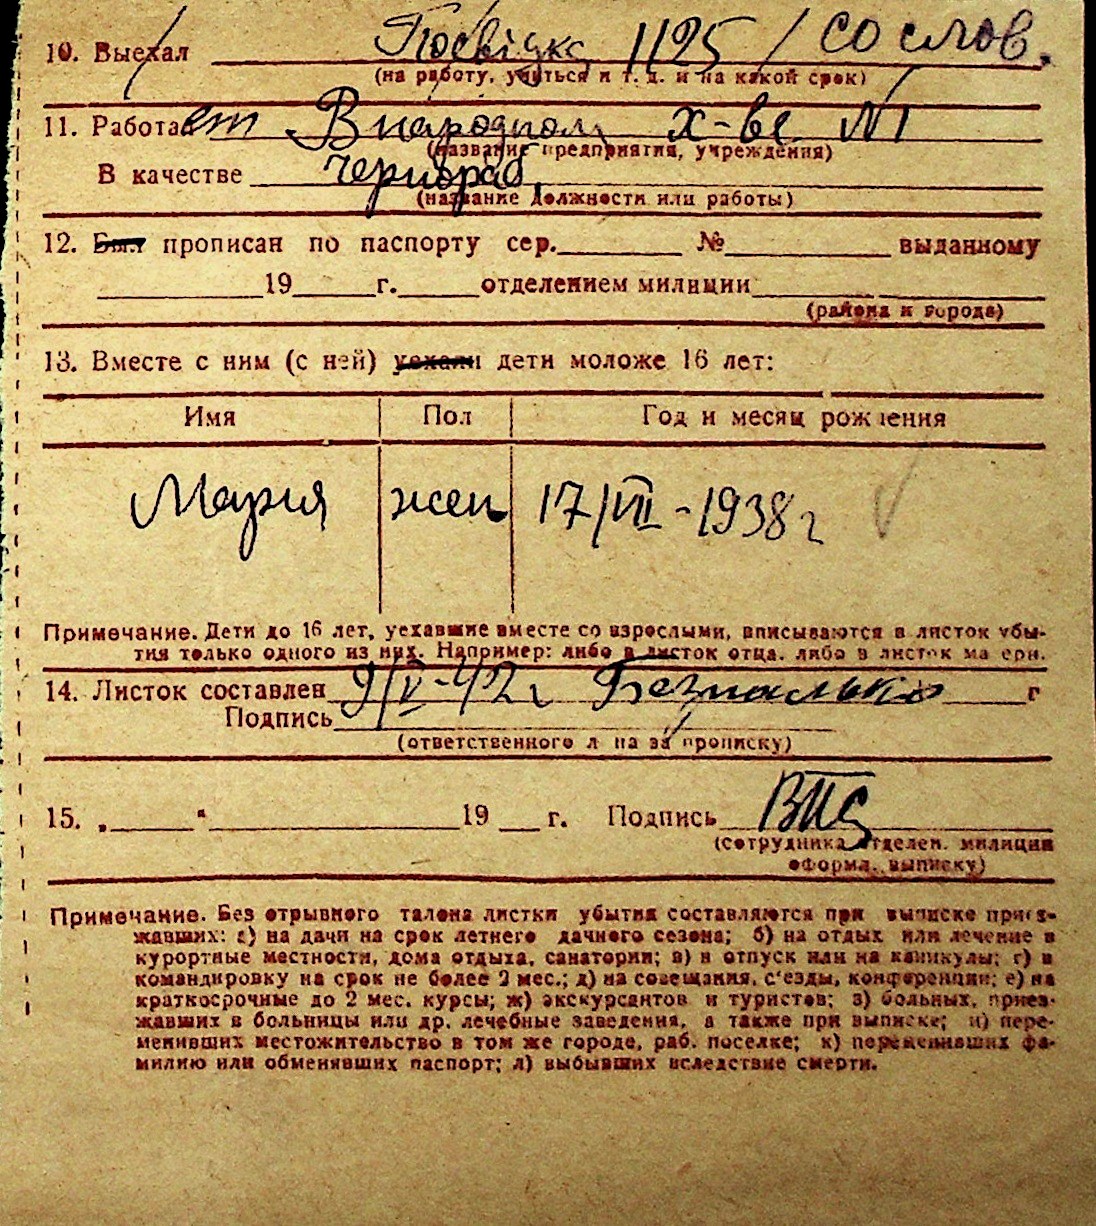 10. Выехал Посвідка 1125 / со слов.
(на работу, учиться и т. д. и на какой срок)
11. Работает В народном х-ве №1
(название предприятия, учреждения)
В качестве чернораб.
(название должности или работы)
12. Был прописан по паспорту сер.______ №______ выданному
______19____г.____отделением милиции______
(района и города)
13. Вместе с ним (с ней) уехали дети моложе 16 лет:
Имя Пол Год и месяц рождения
Мария жен 17/VII-1938г
Примечание. Дети до 16 лет, уехавшие вместе со взрослыми, вписываются в листок убы-
тия только одного из них. Например: либо в листок отца, либо в листок матери.
14. Листок составлен 9/IV-42г г
Подпись
(ответственного лица за прописку)
15. „______“______19___г. Подпись
(сотрудника отделен. милиции
оформ. выписку)
Примечание. Без отрывного талона листки убытия составляются при выписке приез-
жавших: а) на дачи на срок летнего дачного сезона; б) на отдых или лечение в
курортные местности, дома отдыха, санатории; в) в отпуск или на каникулы; г) в
командировку на срок не более 2 мес.; д) на совещания, с'езды, конференции; е) на
краткосрочные до 2 мес. курсы; ж) экскурсантов и туристов; з) больных, приез-
жавших в больницы или др. лечебные заведения, а также при выписке; и) пере-
менивших местожительство в том же городе, раб. поселке; к) переменивших фа-
милию или обменявших паспорт; л) выбывших вследствие смерти.